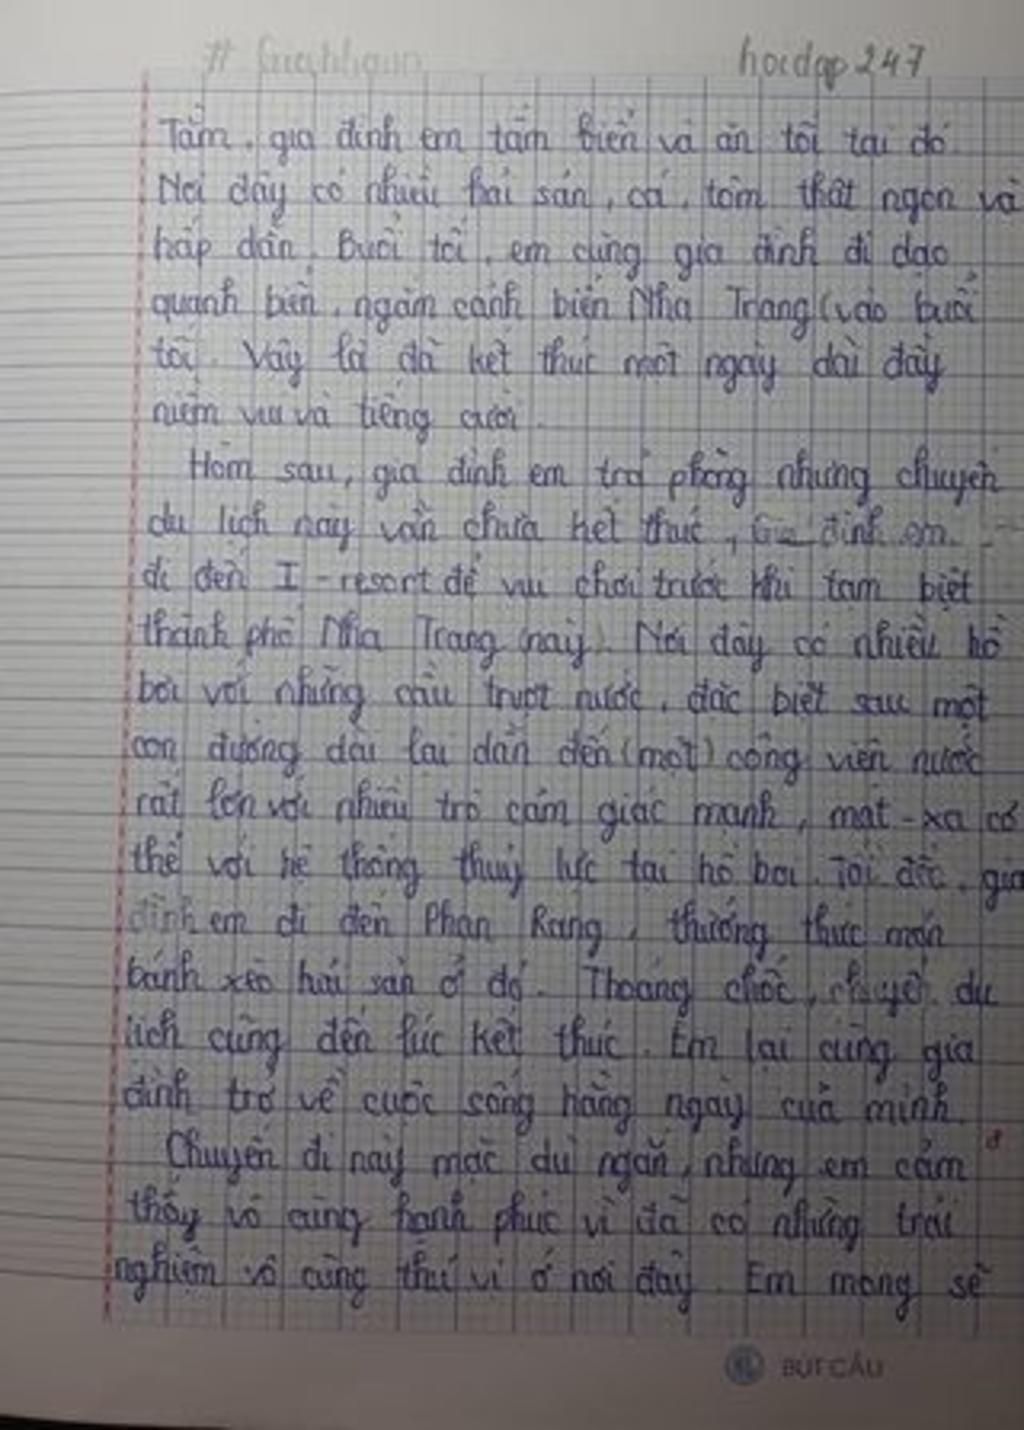 hoidap247
Tắm, gia đình em tắm biển và ăn tối tại đó
Nơi đây có nhiều hải sản, cá, tôm thật ngon và
hấp dẫn. Buổi tối, em cùng gia đình đi dạo
quanh biển, ngắm cảnh biển Nha Trang (vào buổi
tối). Vậy là đã kết thúc một ngày dài đầy
niềm vui và tiếng cười.
Hôm sau, gia đình em trả phòng nhưng chuyến
du lịch này vẫn chưa kết thúc, Gia đình em
đi đến I-resort để vui chơi trước khi tạm biệt
thành phố Nha Trang (này). Nơi đây có nhiều hồ
bơi với những cầu trượt nước, đặc biệt sau một
con đường dài lại dẫn đến (một) công viên nước
rất lớn với nhiều trò cảm giác mạnh, mát-xa cơ
thể với hệ thống thuỷ lực tại hồ bơi. gia
đình em đi đến Phan Rang, thưởng thức món
bánh xèo hải sản ở đó. Thoáng chốc, chuyến du
lịch cũng đến lúc kết thúc. Em lại cùng gia
đình trở về cuộc sống hằng ngày của mình.
Chuyến đi này mặc dù ngắn, nhưng em cảm
thấy vô cùng hạnh phúc vì đã có những trải
nghiệm vô cùng thú vị ở nơi đây. Em mong sẽ
BÚT CẦU